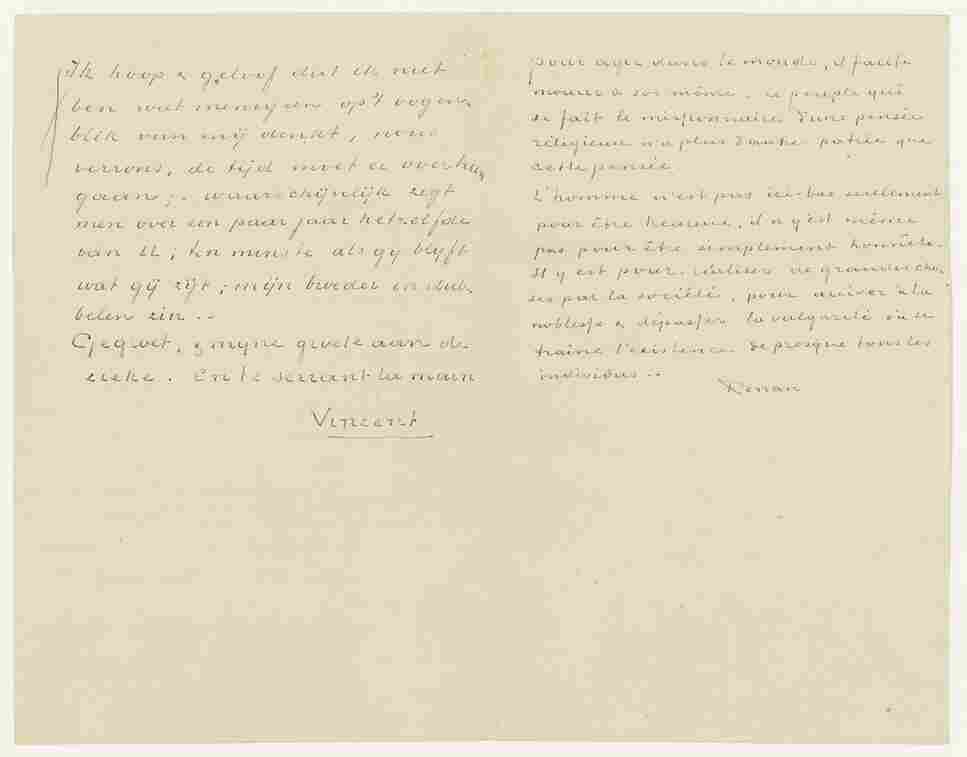 Ik hoop & geloof dat ik niet
ben wat menigeen op't oogen-
blik van mij denkt, nous
verrons, de tijd moet er overheen
gaan; waarschijnlijk zegt
men over een paar jaar hetzelfde
van U; ten minste als gij blyft
wat gij zijt, mijn broeder in dub-
belen zin. -
Gegroet, & myne groete aan de
zieke. En te serrant la main
Vincent
pour agir dans le monde, il faut
mourir à soi même. Le peuple qui
se fait le missionnaire d'une pensée
réligieuse n'a plus d'autre patrie que
cette pensée
L'homme n'est pas ici-bas seulement
pour être heureux, il n'y est même
pas pour être simplement honnête.
Il y est pour réaliser de grandes cho-
ses par la société, pour arriver à la
noblesse & dépasser la vulgarité où se
traine l'existence de presque tous les
individus. -
Renan